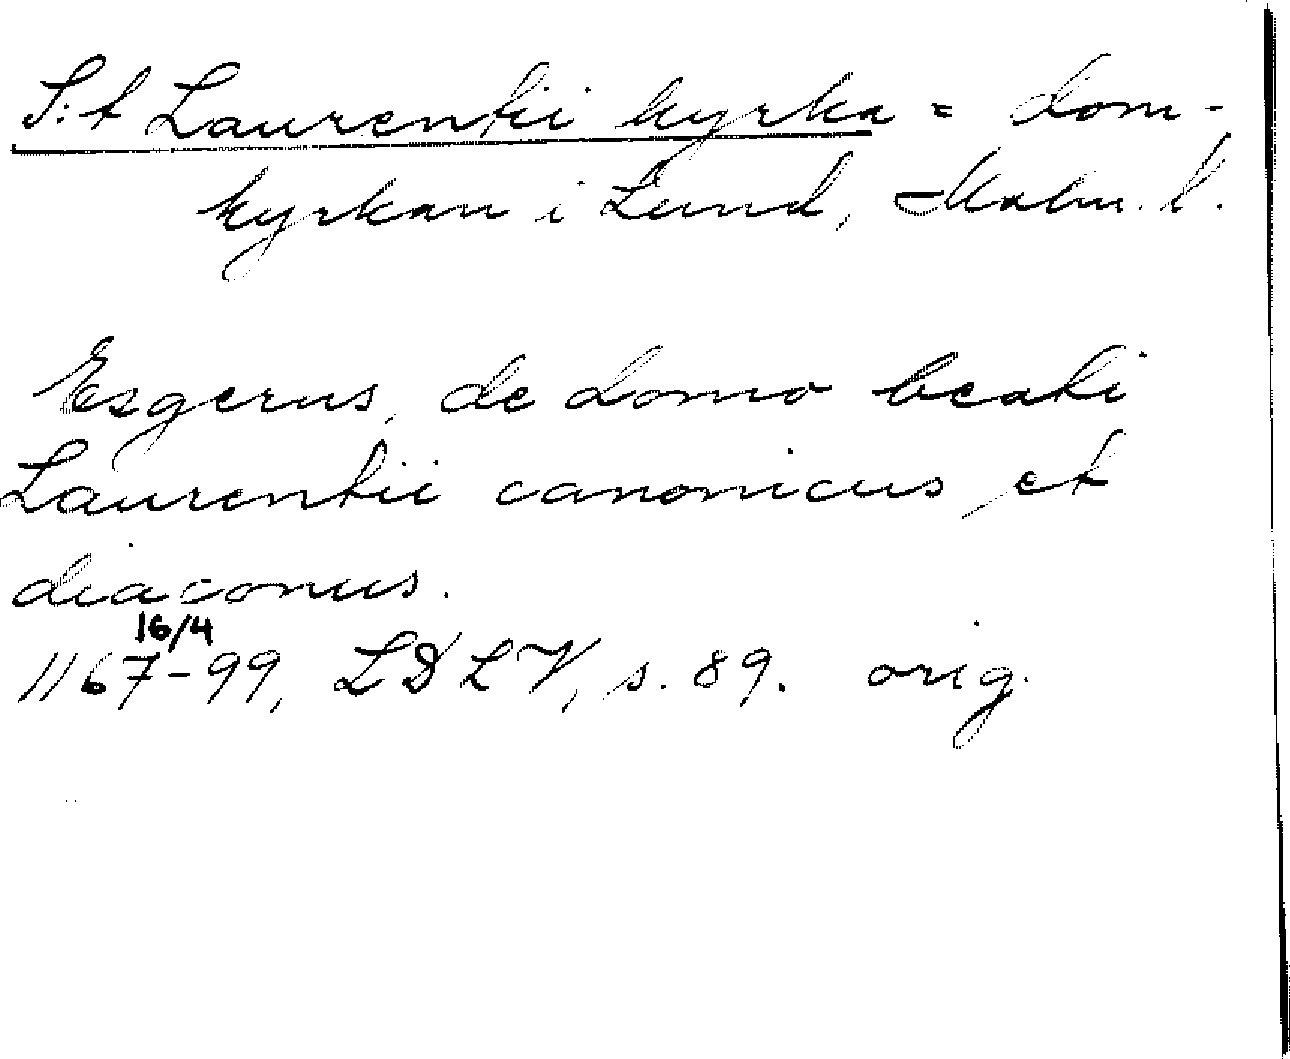 S:t Laurentii kyrka = dom-
kyrkan i Lund, Malm. l.
Esgerus, de domo beati
Laurentii canonicus et
diaconus.
16/4
1167-99, LDLV, s. 89. orig.